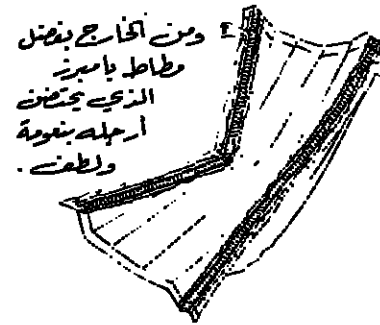 ومن الخارج بفضل
مطاط بامبرز
الذي يحتضن
أرجله بنعومة
ولطف.